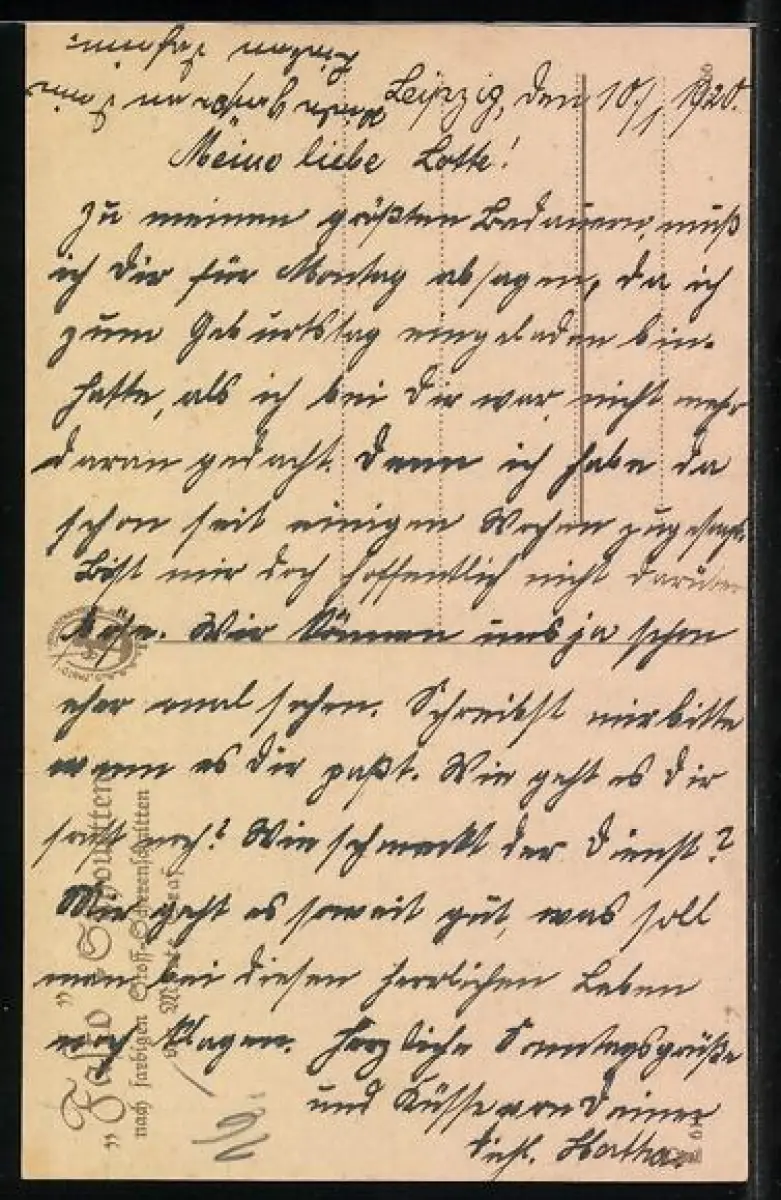 Leipzig, den 10./1. 1920.
Meine liebe Lotte!
Zu meinem größten Bedauern, muß
ich Dir für Montag absagen, da ich
zum Geburtstag eingeladen bin.
Hatte, als ich bei Dir war, nicht mehr
daran gedacht. Denn ich habe da
schon seit einigen Wochen zugesagt.
Bist mir doch hoffentlich nicht darüber
böse. Wir können uns ja schon
eher mal sehen. Schreibst mir bitte
wann es Dir paßt. Wie geht es Dir
sonst noch? Wie schmeckt der Dienst?
Mir geht es soweit gut, was soll
man bei diesen herrlichen Leben
noch klagen. Herzliche Sonntagsgrüße
und Küsse von Deiner
Hertha
nach farbigen Stoff-Scherenschnitten